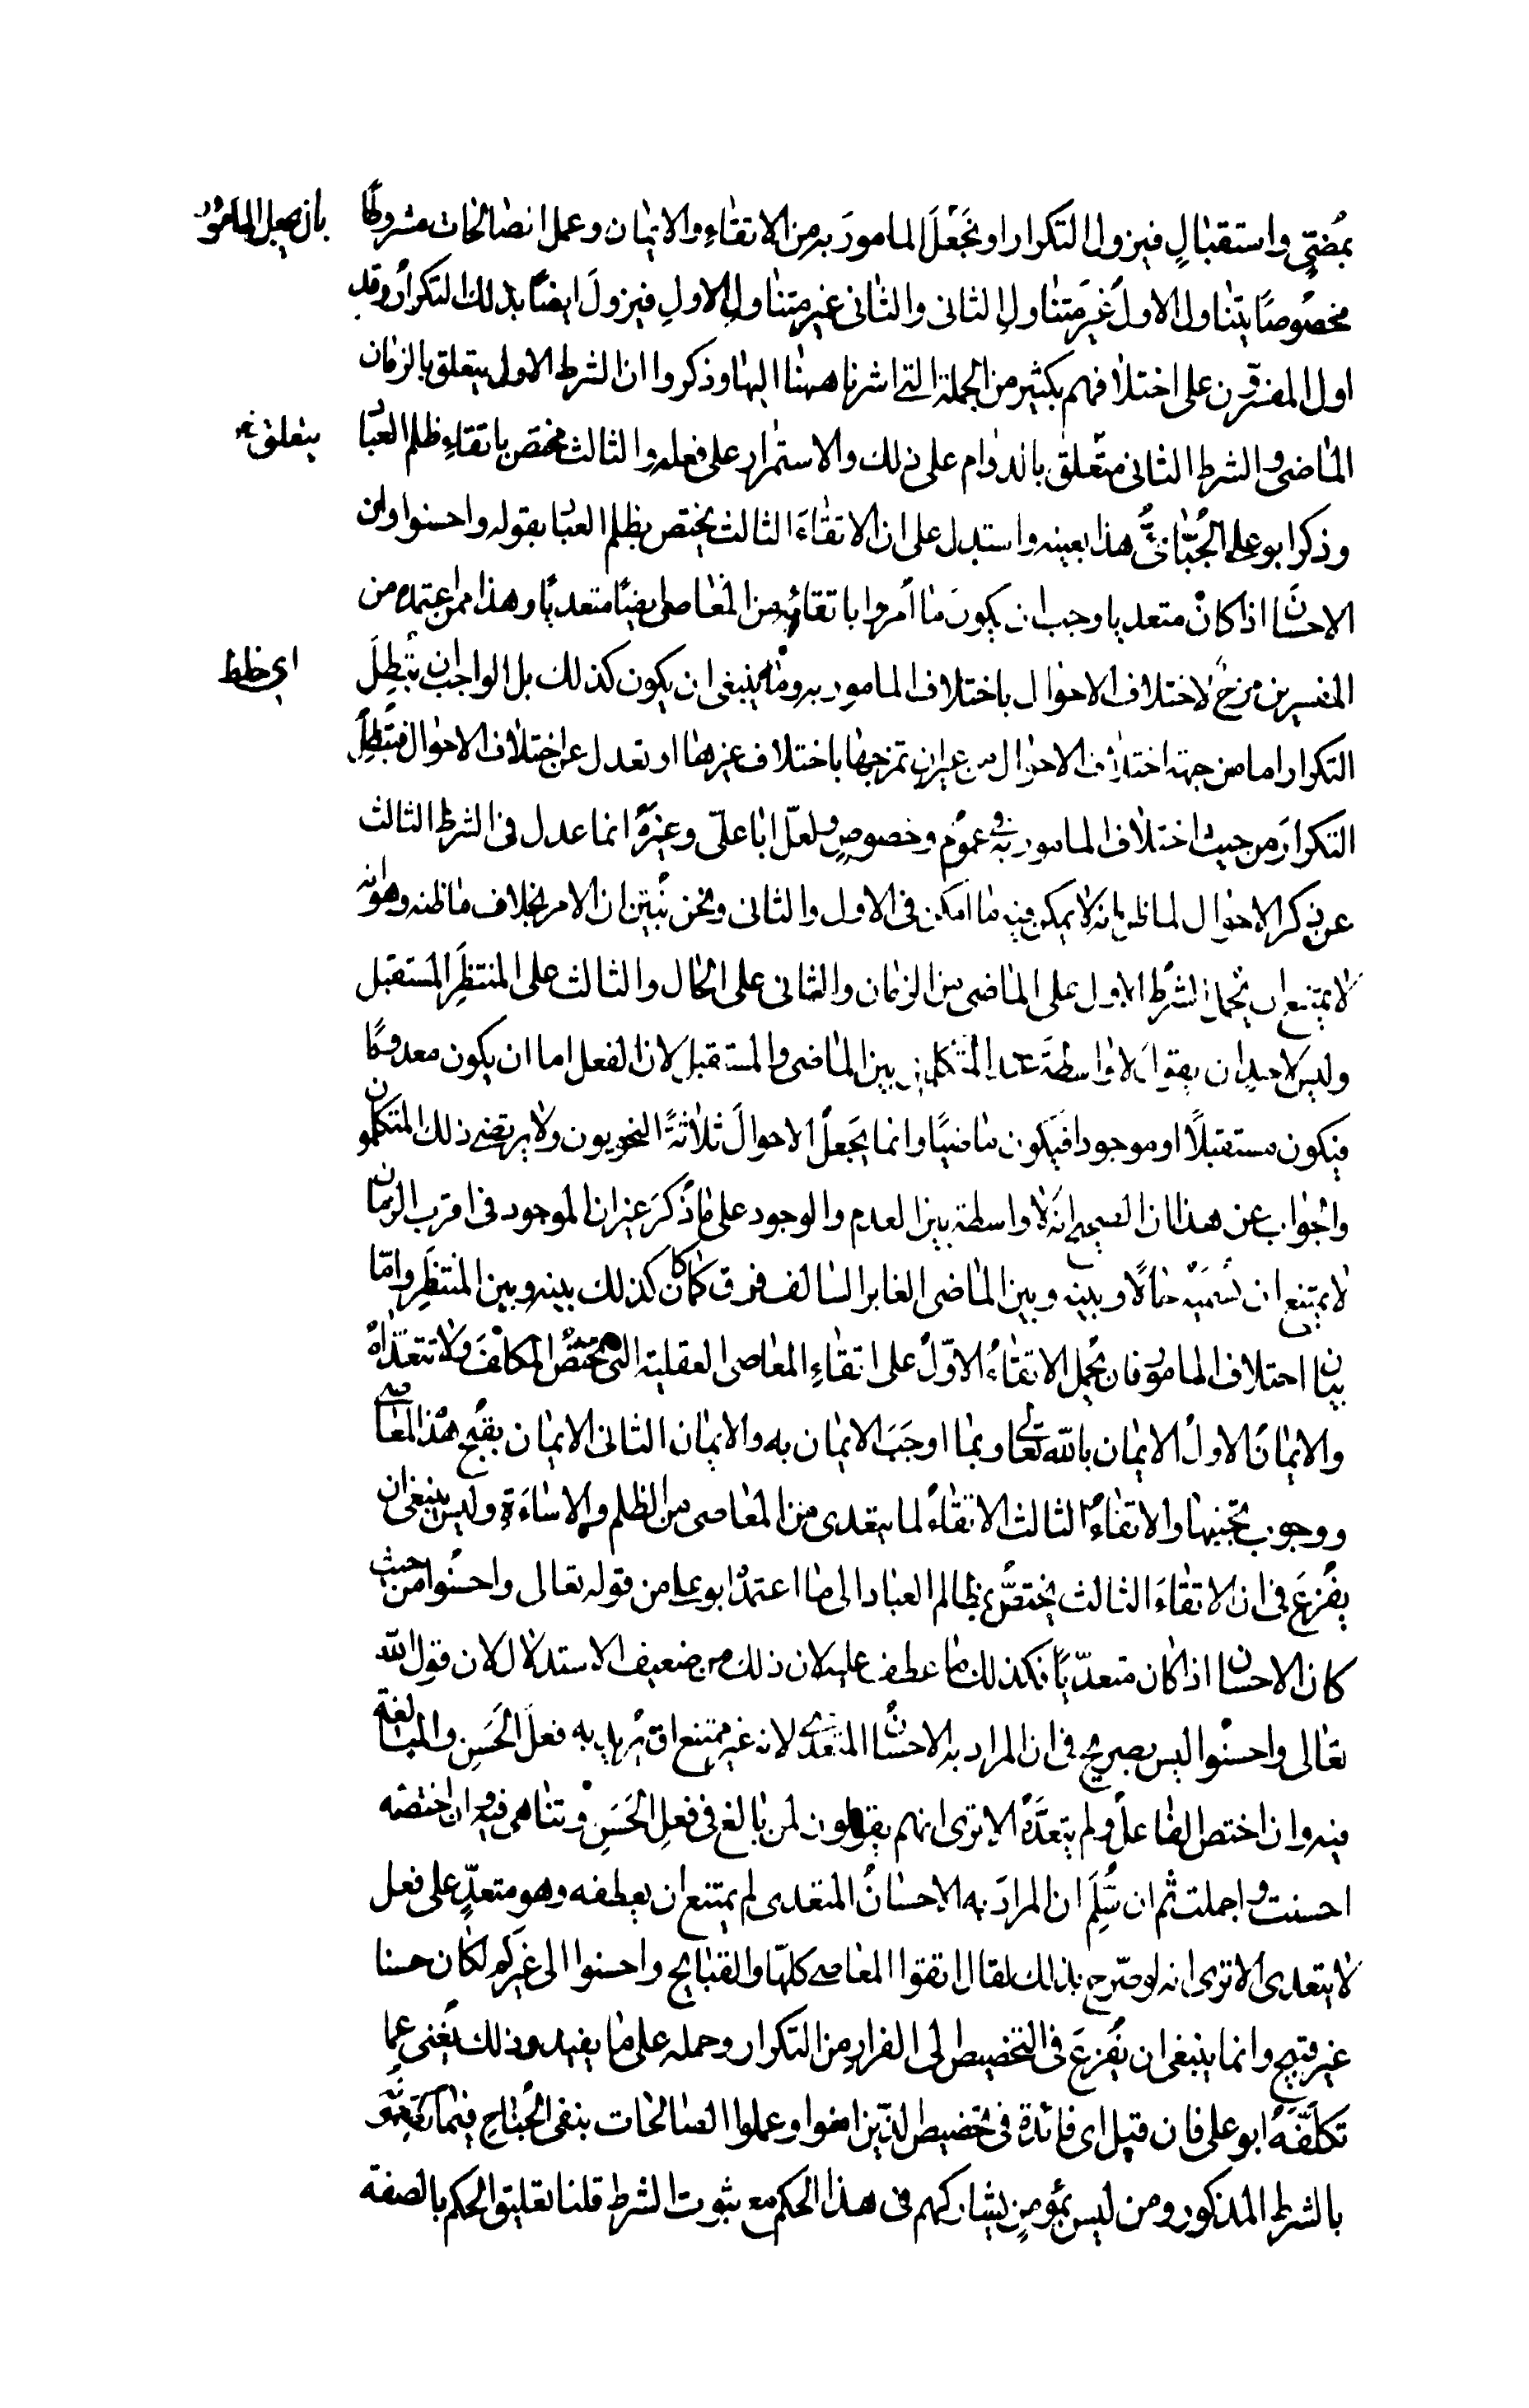 بمُضيٍّ واستقبالٍ فيزول التكرار او نَجْعَلَ المامورَ به من الاتقاءِ والايمان وعمل الصالحات مشروطًا
بان يجعل المامور
مخصُوصًا يتناول الاولُ غيرَ متناولِ الثانى والثانى غير متناولِ الاولِ فيزولَ ايضًا بذلك التكرارُ وقد
اول المفسّرون على اختلافهم بكثير من الجملة التى اشرنا ههنا اليها وذكروا ان الشرط الاول يتعلق بالزمان
الماضى والشرط الثانى متعلق بالدوام على ذلك والاستمرار على فعله والثالث مختص باتقاءِ ظلم العباد
يتعلق خ
وذكر ابو على الجُبّائىُّ هذا بعينه واستدل على ان الاتقاءَ الثالث يختص بظلم العباد بقوله واحسنوا وان
الاحسان اذا كان متعديا وجب ان يكونَ ما اُمروا باتقائه من المعاصى ايضًا متعديًا وهذا ممن اعتمده من
المفسرين مزجٌ لاختلاف الاحوال باختلاف المامور به وما ينبغى ان يكون كذلك بل الواجب ان نُبْطِلَ
اى خلط
التكرار اما من جهة اختلاف الاحوال من غير ان تمزجها باختلاف غيرها او تعدل عن اختلاف الاحوال فتُبْطِلَ
التكرارَ من حيث اختلاف المامور به فى عموم وخصوصٍ ولعلّ ابا علىّ وغيرَه انما عدل فى الشرط الثالث
عن ذكر الاحوال لما ظن انه لا يمكن فيه ما امكن فى الاول والثانى ونحن نُبَيّن ان الامر بخلاف ما ظنه وهو انه
لا يمتنع ان نحمل الشرط الاول على الماضى من الزمان والثانى على الحال والثالث على المنتظَرِ المستقبل
وليس لاحد ان يقول لا واسطةَ عند المتكلمين بين الماضى والمستقبل لان الفعل اما ان يكون معدومًا
فيكون مستقبلًا او موجودا فيكون ماضيًا وانما يَجعلُ الاحوالَ ثلاثةً النحويون ولا يرتضى ذلك المتكلمون
والجواب عن هذا ان الصحيح انه لا واسطة بين العدم والوجود على ما ذُكرَ غير ان الموجود فى اقرب الزمان
لا يمتنع ان نُسَمّيَه حالًا وبينه وبين الماضى الغابر السالف فرق كما كان كذلك بينه وبين المنتظَرِ وامّا
بيان اختلاف المامور فان نحمل الاتقاءُ الاوّلُ على اتقاءِ المعاصى العقلية التى تختصّ المكلّف ولا تتعدّاه
والايمانَ الاولَ الايمان بالله تعالى وبما اوجَبَ الايمان به والايمان الثانى الايمان بقبح هذه المعاصى
ووجوب تجنبها والاتقاءُ الثالث الاتقاءَ لما يتعدى من المعاصى من الظلم والاساءَةِ وليس ينبغى ان
يفْزعَ فى ان الاتقاءَ الثالث يختصُّ بمظالم العباد الى ما اعتمدَ ابو على من قوله تعالى واحسنُوا من حيث
كان الاحسان اذا كان متعدّيًا فكذلك ما عطف عليه لان ذلك من ضعيف الاستدلال لان قول الله
تعالى واحسنُوا ليس بصريح فى ان المراد به الاحسانُ المتعدى لانه غير ممتنع ان يريد به فعلَ الحَسَنِ والمبالغة
فيه وان اختص الفاعلَ ولم يتعدَّهُ الا ترى انهم يقولون لمن بالغ فى فعلِ الحَسَنِ وتناهى فيه وان اختصّه
احسنت واجملت ثم ان سُلِّمَ ان المرادَ به الاحسانُ المتعدى لم يمتنع ان يعطفه وهو متعدٍّ على فعل
لا يتعدى الا ترى انه لو صّرح بذلك لقال اتقوا المعاصى كلها والقبايح واحسنوا الى غيركم لكان حسنا
غير قبيح وانما ينبغى ان يُفزعَ فى التخصيص الى الفرارِ من التكرار وحمله على ما يفيد وذلك يُغنى عما
تكلّفَهُ ابو على فان قيل اى فائدة فى تخصيص الذين امنوا وعملوا الصالحات بنفى الجُناحِ فيما
بالشرط المذكور ومن ليس بمؤمنٍ يشاركهم فى هذا الحكم مع ثبوت الشرط قلنا تعليق الحكم بالصفة